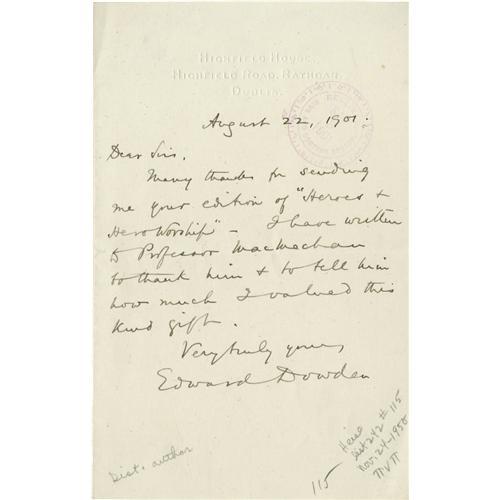 Highfield House,
Highfield Road, Rathgar,
Dublin.
August 22, 1901.
Dear Sirs,
Many thanks for sending
me your edition of "Heroes &
Hero Worship" – I have written
to Professor MacMechan
to thank him & to tell him
how much I valued this
kind gift.
Very truly yours,
Edward Dowden
Dist. author
115
Heise
list 242 # 115
Nov. 24-1950